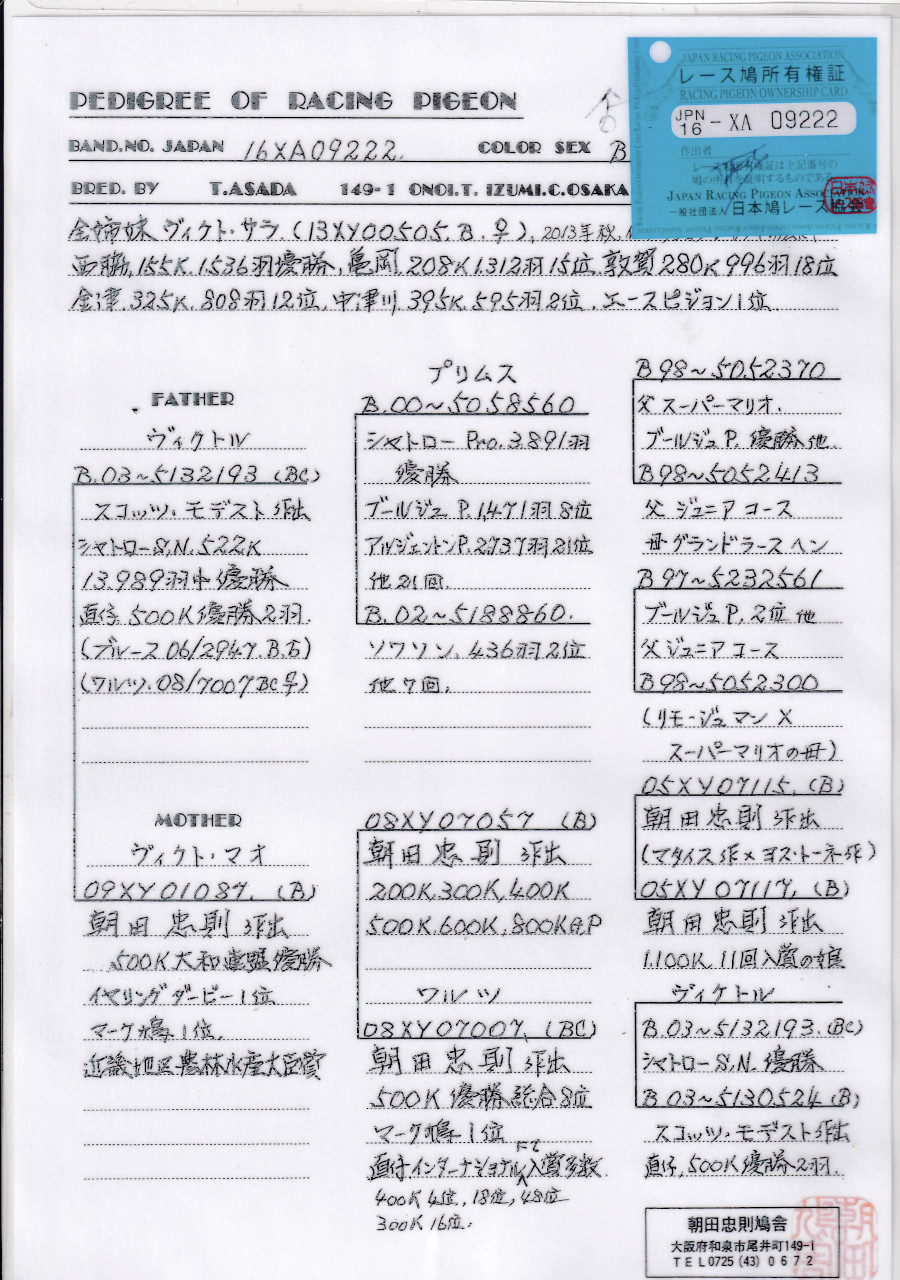 PEDIGREE OF RACING PIGEON
BAND.NO. JAPAN 16XA09222. COLOR SEX B
BRED. BY T.ASADA 149-1 ONOI.T. IZUMI.C.OSAKA
JAPAN RACING PIGEON ASSOCIATION
レース鳩所有権証
RACING PIGEON OWNERSHIP CARD
JPN 16 - XA 09222
作出者
レース鳩所有権証は上記番号の
鳩の所有を証明するものである
JAPAN RACING PIGEON ASSOCIATION
一般社団法人 日本鳩レース協会
全姉妹 ヴィクト・サラ (13XY00505.B.♀), 2013年秋
西脇,155K.1,536羽優勝,亀岡,208K.1312羽15位,敦賀280K996羽18位
金津,325K,808羽12位,中津川,395K,595羽2位,エースピジョン1位
FATHER
ヴィクトル
B.03~5132193 (BC)
スコッツ・モデスト作出
シャトローS,N.522K
13.989羽中優勝
直仔 500K優勝2羽.
(ブルース 06/2947.B.♂)
(ワルツ.08/7007BC♀)
MOTHER
ヴィクト・マオ
09XY01087. (B)
朝田忠則 作出
500K大和連盟優勝
イヤリングダービー1位
マーク鳩1位.
近畿地区農林水産大臣賞
プリムス
B.00~5058560
シャトロー Pro.3.891羽
優勝
ブールジュ P.1,471羽8位
アルジェントンP.2,737羽21位
他21回.
B.02~5188860.
ソワソン,436羽2位
他7回.
08XY07057 (B)
朝田忠則 作出
200K,300K,400K
500K,600K,800KG.P
ワルツ
08XY07007. (BC)
朝田忠則 作出
500K優勝総合8位
マーク鳩1位
直仔インターナショナルにて入賞多数
400K4位,18位,48位
300K16位.
B98~5052370
父 スーパーマリオ.
ブールジュP.優勝他.
B98~5052413
父 ジュニアコース
母 グランドラースヘン
B97~5232561
ブールジュP,2位他
父 ジュニアコース
B98~5052300
(リモージュマン X
スーパーマリオの母)
05XY07115. (B)
朝田忠則 作出
(マタイス作×ヨス・トーネ作)
05XY07117. (B)
朝田忠則 作出
1.100K,11回入賞の娘
ヴィクトル
B.03~5132193.(BC)
シャトローS,N.優勝
B.03~5130524 (B)
スコッツ・モデスト作出
直仔,500K優勝2羽.
朝田忠則鳩舎
大阪府和泉市尾井町149-1
TEL0725 (43) 0672